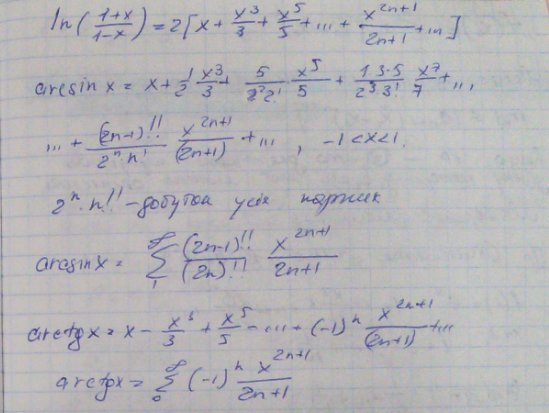 ln(\frac{1+x}{1-x}) = 2[x + \frac{x^3}{3} + \frac{x^5}{5} + ... + \frac{x^{2n+1}}{2n+1} + ...]
arcsin x = x + \frac{1}{2} \frac{x^3}{3} + \frac{5}{2^2 2!} \frac{x^5}{5} + \frac{1 3·5}{2^3 3!} \frac{x^7}{7} + ...
... + \frac{(2n-1)!!}{2^n n!} \frac{x^{2n+1}}{(2n+1)} + ... , -1<x<1.
2^n · n!! - добуток усіх парних
arcsin x = \sum_{1}^{∞} \frac{(2n-1)!!}{(2n)!!} \frac{x^{2n+1}}{2n+1}
arctg x = x - \frac{x^3}{3} + \frac{x^5}{5} - ... + (-1)^n \frac{x^{2n+1}}{(2n+1)} + ...
arctg x = \sum_{0}^{∞} (-1)^n \frac{x^{2n+1}}{2n+1}